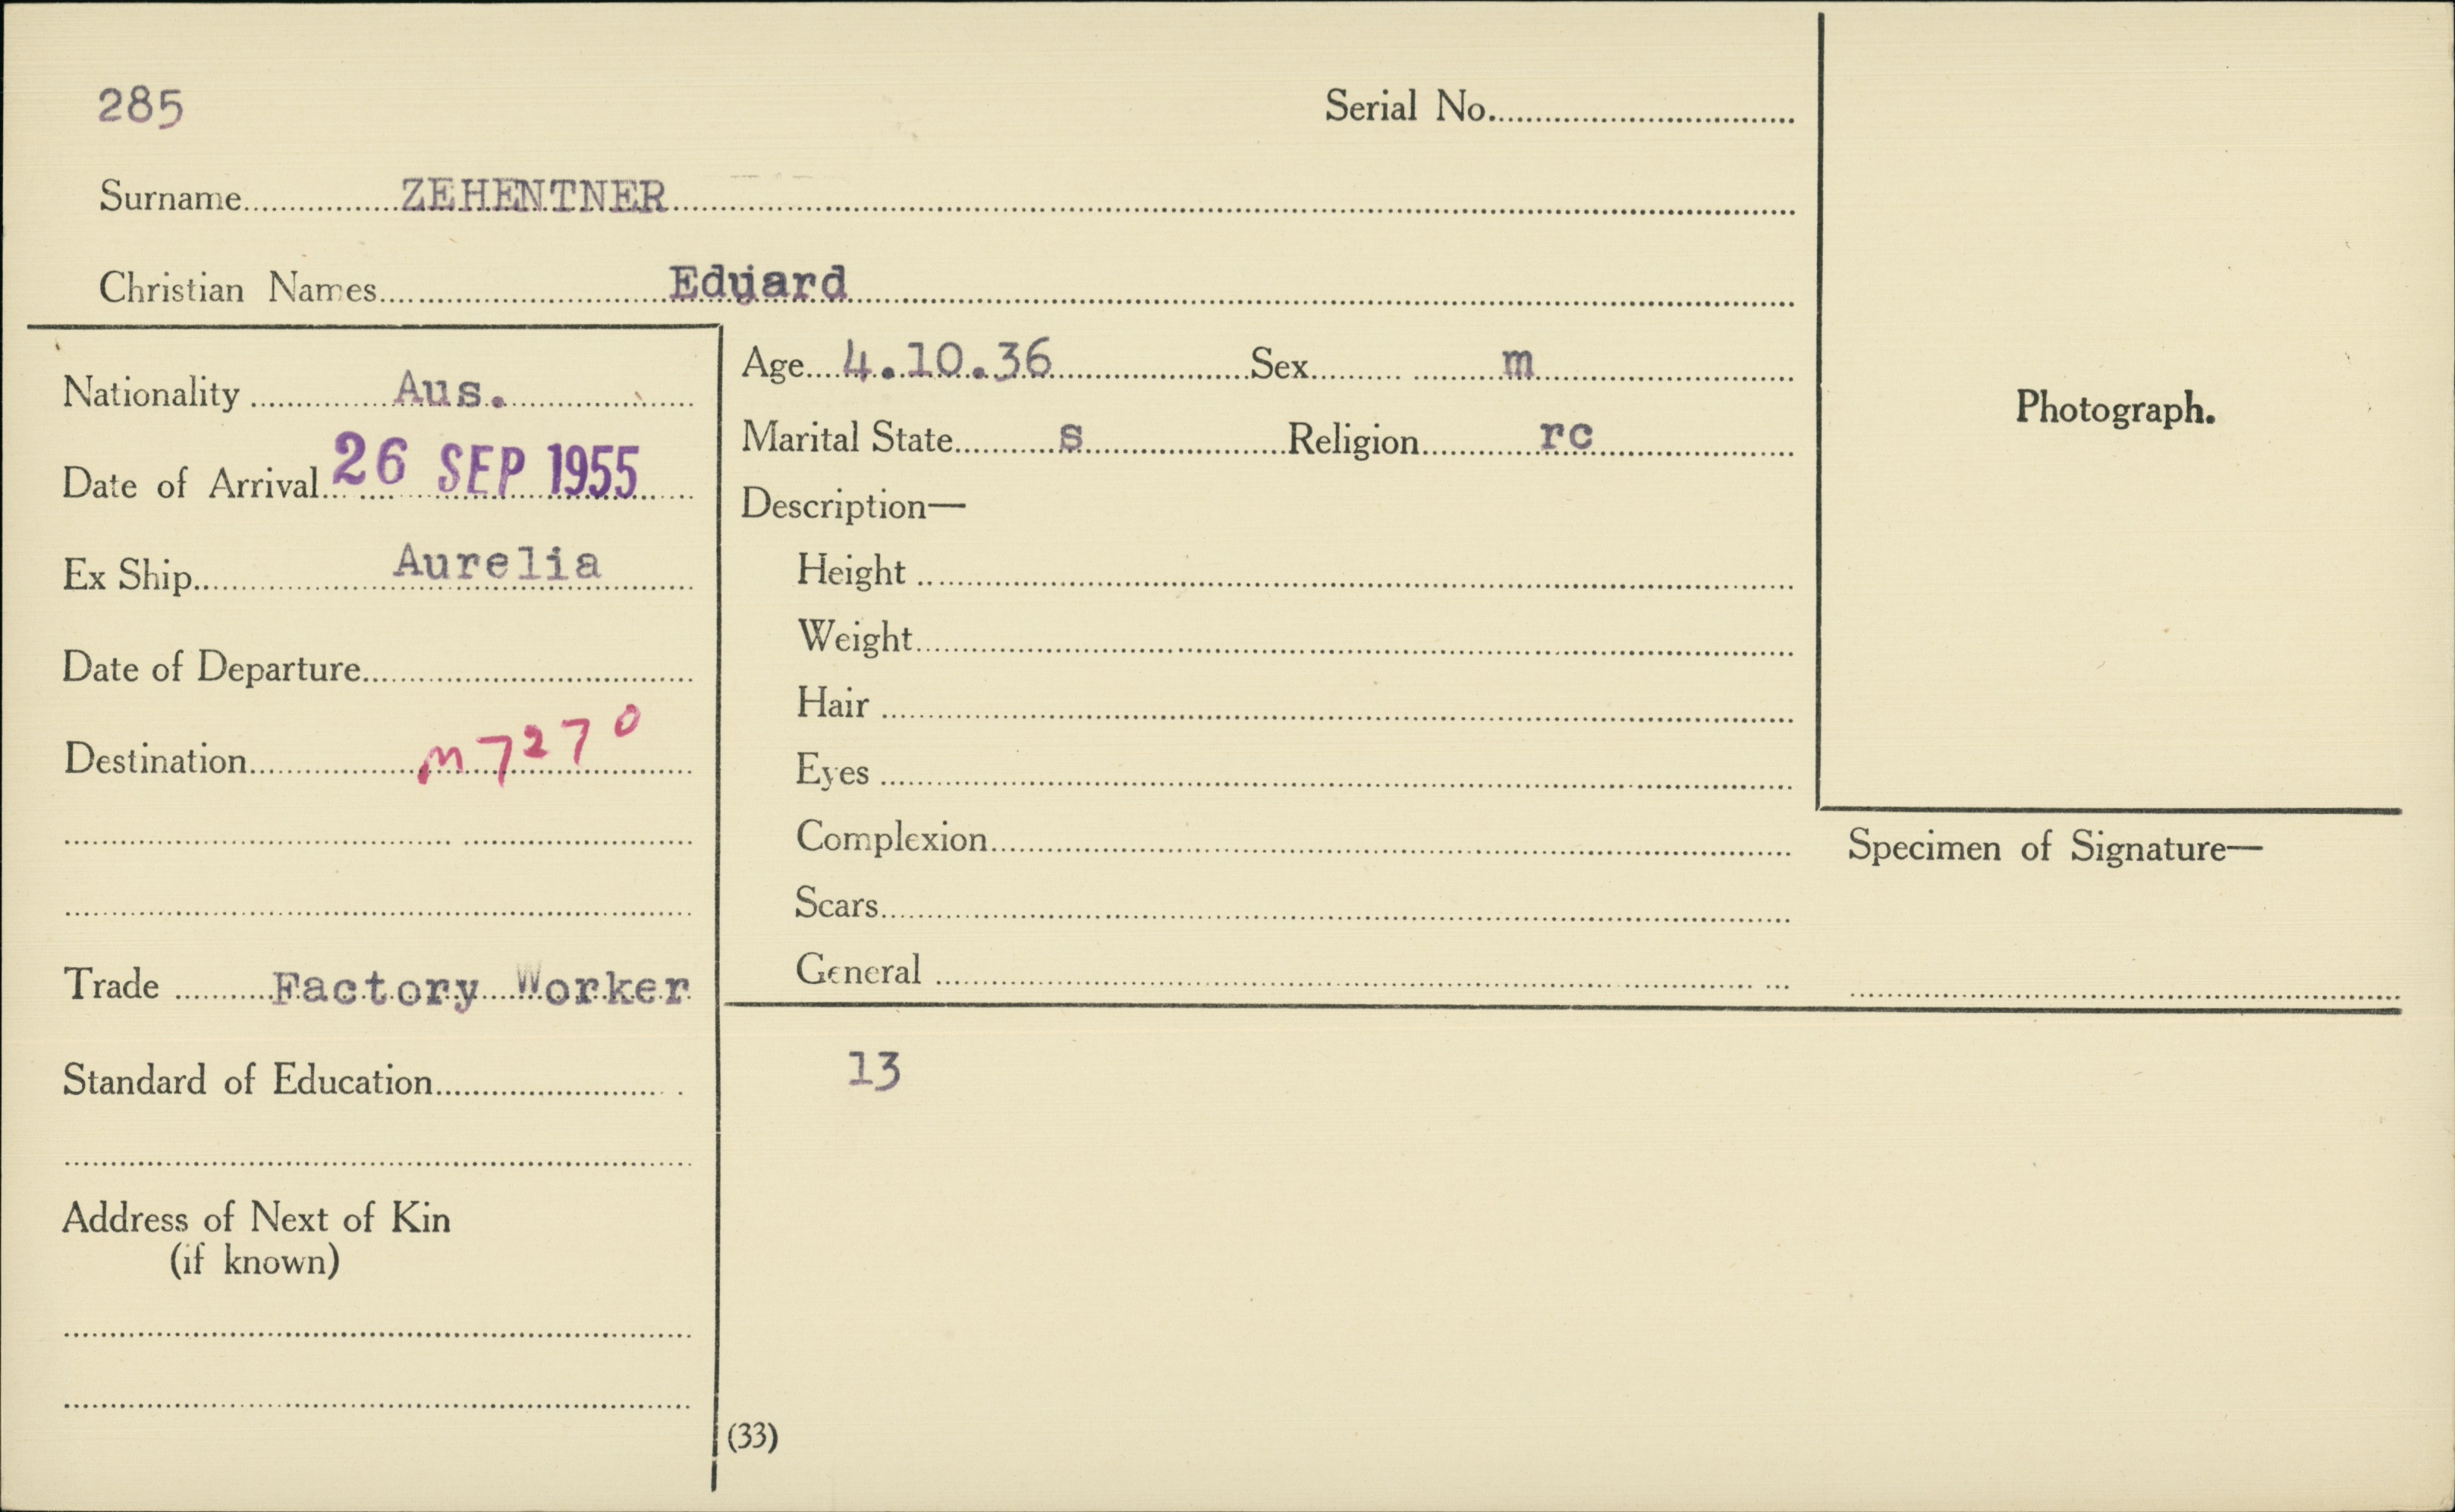 285
Serial No.
Surname ZEHENTNER
Christian Names Eduard
Nationality Aus.
Date of Arrival 26 SEP 1955
Ex Ship Aurelia
Date of Departure
Destination M7270
Trade Factory Worker
Standard of Education
Address of Next of Kin
(if known)
Age 4.10.36 Sex m
Marital State s Religion rc
Description—
Height
Weight
Hair
Eyes
Complexion
Scars
General
13
(33)
Photograph.
Specimen of Signature—